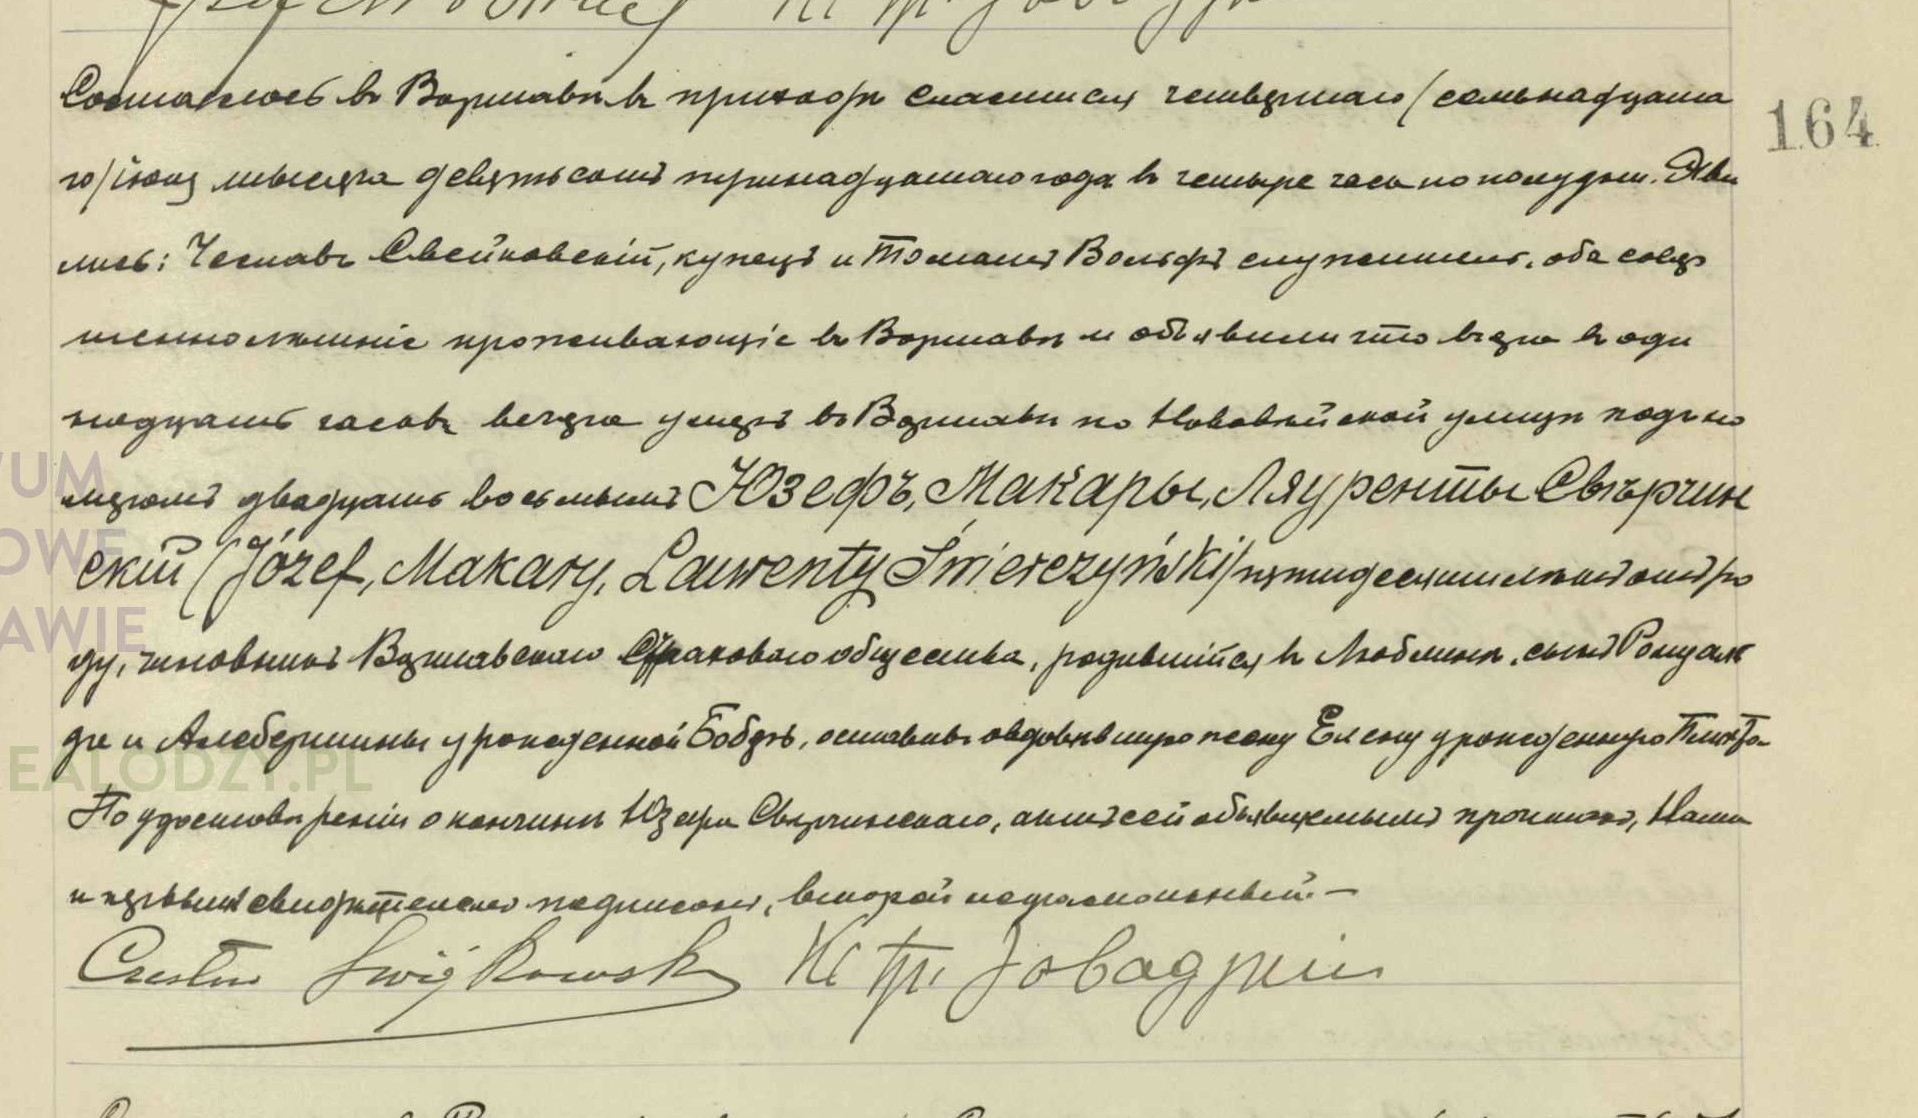 Состоялось въ Варшавѣ въ приходѣ Спасителя четвертаго /семнадцата
го/ іюня мѣсяца девятьсотъ тринадцатаго года въ четыре часа по полудни. Яви
лись: Чеславъ Свейковскій, купецъ и Томашъ Вольфъ служитель, оба совер
шеннолѣтніе проживающіе въ Варшавѣ и объявили что вчера въ оди
надцать часовъ вечера умеръ въ Варшавѣ по Нововейской улицѣ подъ но
меромъ двадцать восьмымъ Юзефъ, Макары, Ляуренты Свѣрчин
скій (Józef, Makary, Laurenty Świerczyński) пятидесяти лѣтъ отъ ро
ду, чиновникъ Варшавскаго Страховаго общества, родившійся въ Люблинѣ, сынъ Ромуаль
да и Альбертины урожденной Бобръ, оставивъ овдовѣвшую жену Елену урожденную
По удостовѣреніи о кончинѣ Юзефа Свѣрчинскаго, актъ сей объявляемымъ прочитанъ, Нами
и первымъ свидѣтелемъ подписанъ, второй неграмотный.—
Czesław Swiejkowski Кс
164
WUM
OWE
AWIE
EALODZY.PL